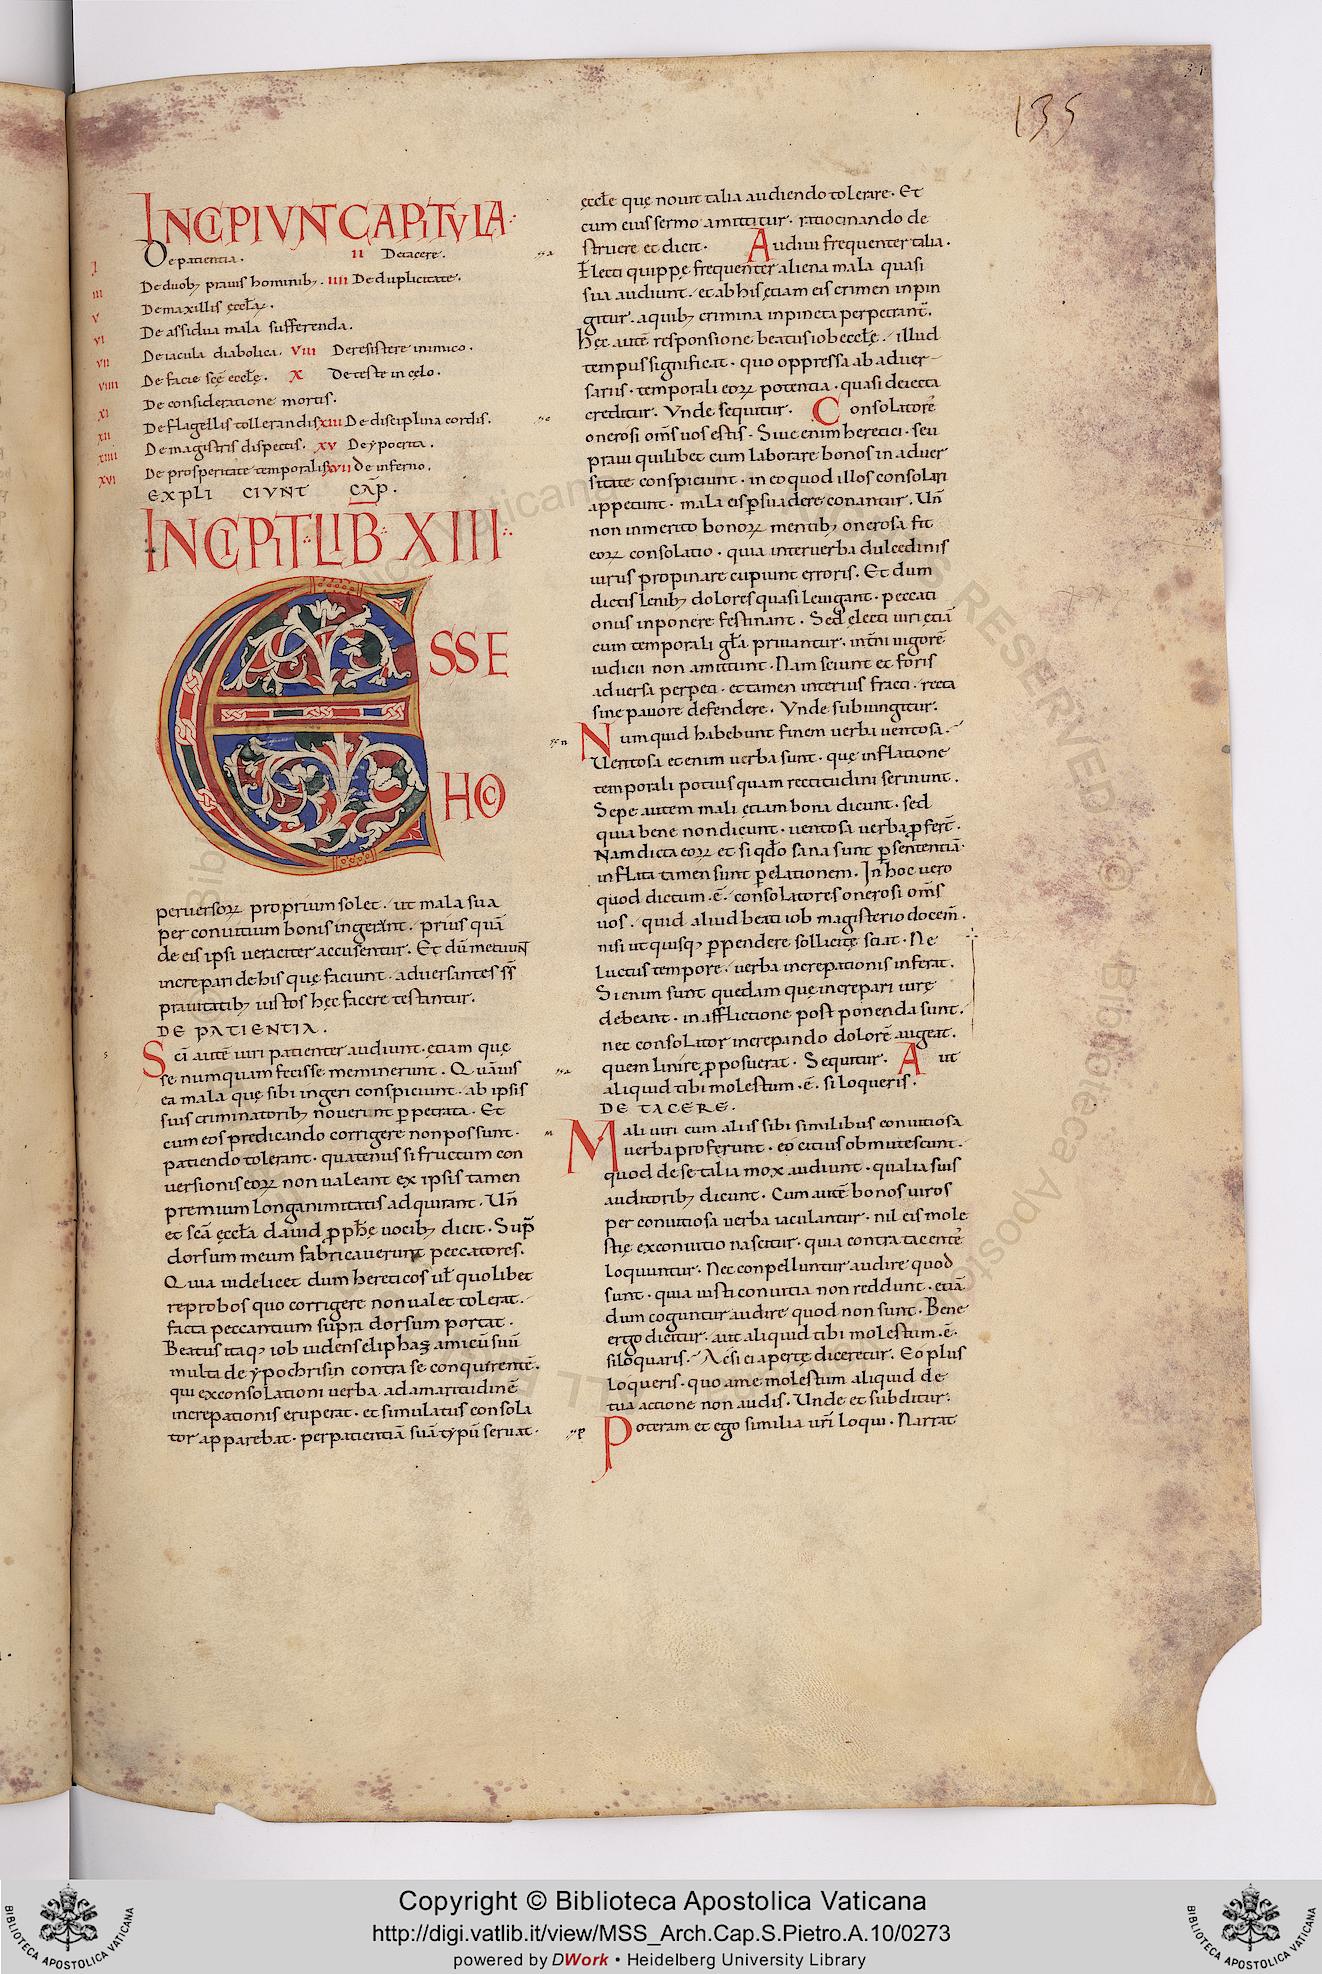 135
INCIPIVNT CAPITVLA
I De patientia. II De tacere.
III De duob; prauis hominib;. IIII De duplicitate.
V De maxillis ęccłaꝝ.
VI De assidua mala sufferenda.
VII De iacula diabolica. VIII De resistere inimico.
VIIII De facie scę ęccłę. X De teste in cęlo.
XI De consideratione mortis.
XII De flagellis tollerandis XIII De disciplina cordis.
XIIII De magistris dispectis. XV De ypocrita.
XVI De prosperitate temporalis XVII De inferno.
EXPLICIVNT CAP̄.
INCIPIT LIB̄ XIII
ESSE
HOC
peruersoꝝ proprium solet. ut mala sua
per conuitium bonis ingerant. prius quā
de eis ipsi ueraciter accusentur. Et dū metuunt
increpari de his quę faciunt. aduersantes ss̄
prauitatib; iustos hęc facere testantur.
DE PATIENTIA.
Sci autē uiri patienter audiunt. ętiam quę
se numquam fecisse meminerunt. Quāuis
ea mala quę sibi ingeri conspiciunt. ab ipsis
suis criminatorib; nouerint ꝑpetrata. Et
cum eos predicando corrigere non possunt.
patiendo tolerant. quatenus si fructum con
uersionis eoꝝ non ualeant ex ipsis tamen
premium longanimitatis adquirant. Un̄
et scā ęccła dauid ꝓphę uocib; dicit. Sup̄
dorsum meum fabricauerunt peccatores.
Quia uidelicet dum hereticos uł quolibet
reprobos quo corrigere non ualet tolerat.
facta peccantium supra dorsum portat.
Beatus itaq; iob uidens eliphaz amicū suū
multa de ypochrisin contra se conquirentē.
qui ex consolationi uerba ad amaritudinē
increpationis eruperat. et simulatus consola
tor apparebat. per patientiā suā typū seruat.
ęccłę quę nouit talia audiendo tolerare. Et
cum eius sermo amittitur. ratiocinando de
struere et dicit. Audiui frequenter talia.
Electi quippe frequenter aliena mala quasi
sua audiunt. et ab his ętiam eis crimen inpin
gitur. a quib; crimina inpincta perpetrant̄.
Hęc autē responsione beatus iob ęccłę. illud
tempus significat. quo oppressa ab aduer
sariis. temporali eoꝝ potentia. quasi deiecta
creditur. Vnde sequitur. Consolatorē
onerosi om̄s uos estis. Siue enim heretici. seu
praui quilibet cum laborare bonos in aduer
sitate conspiciunt. in eo quod illos consolari
appetunt. mala eis ꝑsuadere conantur. Un̄
non inmerito bonoꝝ mentib; onerosa fit
eoꝝ consolatio. quia inter uerba dulcedinis
uirus propinare cupiunt erroris. Et dum
dictis lenib; dolores quasi leuigant. peccati
onus inponere festinant. Sed electi uiri etiā
cum temporali głā priuantur. int̄ni uigorē
iudicii non amittunt. Nam sciunt et foris
aduersa perpeti. et tamen interius fracti. recta
sine pauore defendere. Vnde subiungitur.
Numquid habebunt finem uerba uentosa.
Uentosa etenim uerba sunt. quę inflatione
temporali potius quam rectitudini seruiunt.
Sepe autem mali ętiam bona dicunt. sed
quia bene non dicunt. uentosa uerba ꝓferēt.
Nam dicta eoꝝ et si qdo sana sunt ꝑ sententiā
inflata tamen sunt ꝑ elationem. In hoc uero
quod dictum .ē. consolatores onerosi om̄s
uos. quid aliud beati iob magisterio docem̄.
nisi ut quisq; ꝑpendere sollicitę sciat. Ne
luctus tempore. uerba increpationis inferat.
Si enim sunt quedam quę increpari iurę
debeant. in afflictione post ponenda sunt.
nec consolator increpando dolorē augeat.
quem linire ꝓposuerat. Sequitur. Aut
aliquid tibi molestum .ē. si loqueris.
DE TACERE.
Mali uiri cum aliis sibi similibus conuitiosa
uerba proferunt. eo citius obmutescunt.
quod de se talia mox audiunt. qualia suis
auditorib; dicunt. Cum autē bonos uiros
per conuitiosa uerba iaculantur. nil eis mole
stię ex conuitio nascitur. quia contra tacentē
loquuntur. Nec conpelluntur audire quod
sunt. quia iusti conuitia non reddunt. etiā
dum coguntur audire quod non sunt. Bene
ergo dicitur. aut aliquid tibi molestum .ē.
si loquaris. Ac si ei aperte diceretur. Eo plus
loqueris. quo a me molestum aliquid de
tua actione non audis. Unde et subditur.
Poteram et ego similia ur̄i loqui. Narrat
Copyright © Biblioteca Apostolica Vaticana
http://digi.vatlib.it/view/MSS_Arch.Cap.S.Pietro.A.10/0273
powered by DWork • Heidelberg University Library
BIBLIOTECA APOSTOLICA VATICANA
BIBLIOTECA APOSTOLICA VATICANA